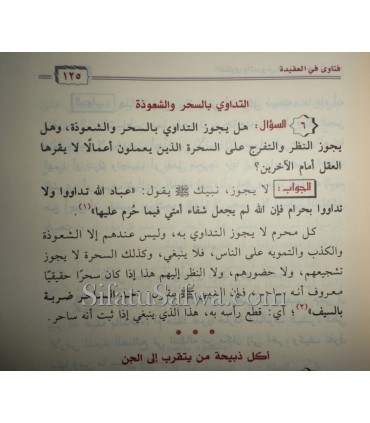 فتاوى في العقيدة
١٢٥
التداوي بالسحر والشعوذة
٦ السؤال: هل يجوز التداوي بالسحر والشعوذة، وهل
يجوز النظر والتفرج على السحرة الذين يعملون أعمالًا لا يقرها
العقل أمام الآخرين؟
الجواب: لا يجوز، نبيك ﷺ يقول: «عباد الله تداووا ولا
تداووا بحرام فإن الله لم يجعل شفاء أمتي فيما حُرم عليها»(١).
كل محرم لا يجوز التداوي به، وليس عندهم إلا الشعوذة
والكذب والتمويه على الناس، فلا ينبغي، وكذلك السحرة لا يجوز
تشجيعهم، ولا حضورهم، ولا النظر إليهم هذا إذا كان سحرًا حقيقيًا
معروف أنه ساحر، فإن النبي ضربة
SifatuSafwa.com
بالسيف»(٢)؛ أي: قطع رأسه به، هذا الذي ينبغي إذا ثبت أنه ساحر.
أكل ذبيحة من يتقرب إلى الجن